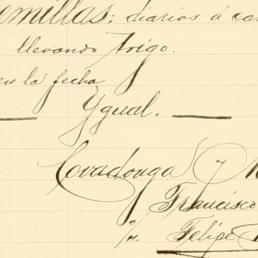 semillas; diarios á ca
llevando trigo.
en la fecha
Ygual.
Covadonga y
Francisco
Felipe